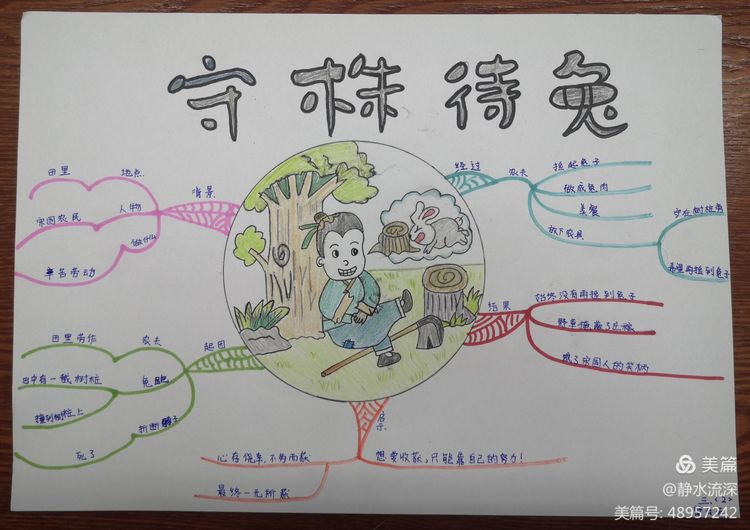 守株待兔
背景
地点
田里
人物
宋国农民
做什么
辛苦劳动
起因
农夫
田里劳作
兔跑
田中有一截树桩
撞到树桩上
折断脖子
死了
经过
农夫
捡起兔子
做成兔肉
美餐
放下农具
守在树桩旁
希望再捡到兔子
结果
始终没有再捡到兔子
野草掩蔽了庄稼
成了宋国人的笑柄
启示
心存侥幸,不劳而获
最终一无所获
想要收获,只能靠自己的努力!
三、(2)
美篇
@静水流深
美篇号: 48957242